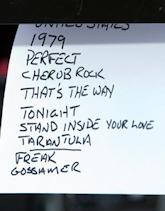 UNITED STATES
1979
PERFECT
CHERUB ROCK
THAT'S THE WAY
TONIGHT
STAND INSIDE YOUR LOVE
TARANTULA
FREAK
GOSSAMER